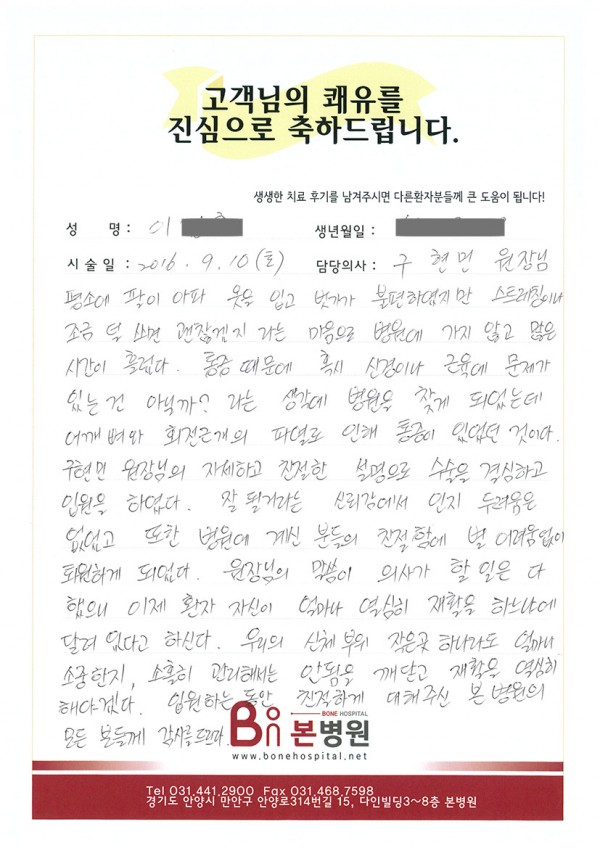 고객님의 쾌유를
진심으로 축하드립니다.
생생한 치료 후기를 남겨주시면 다른환자분들께 큰 도움이 됩니다!
성 명 : 이
생년월일 :
시 술 일 : 2016. 9. 10 (토) 담당의사 : 구 현민 원장님
평소에 팔이 아파 옷을 입고 벗기가 불편하였지만 스트레칭이나
조금 덜 쓰면 괜찮겠지 라는 마음으로 병원에 가지 않고 많은
시간이 흘렀다. 통증 때문에 혹시 신경이나 근육에 문제가
있는건 아닐까? 라는 생각에 병원을 찾게 되었는데
어깨 뼈와 회전근개의 파열로 인해 통증이 있었던 것이다.
구현민 원장님의 자세하고 친절한 설명으로 수술을 결심하고
입원을 하였다. 잘 될거라는 신뢰감에서 인지 두려움은
없었고 또한 병원에 계신 분들의 친절함에 별 어려움없이
퇴원하게 되었다. 원장님의 말씀이 의사가 할 일은 다
했으니 이제 환자 자신이 얼마나 열심히 재활을 하느냐에
달려 있다고 하신다. 우리의 신체 부위 작은곳 하나라도 얼마나
소중한지, 소홀히 관리해서는 안됨을 깨닫고 재활을 열심히
해야겠다. 입원하는 동안 친절하게 대해주신 본 병원의
모든 분들께 감사를드린다.
BONE HOSPITAL
본병원
www.bonehospital.net
Tel 031.441.2900 Fax 031.468.7598
경기도 안양시 만안구 안양로314번길 15, 다인빌딩3~8층 본병원